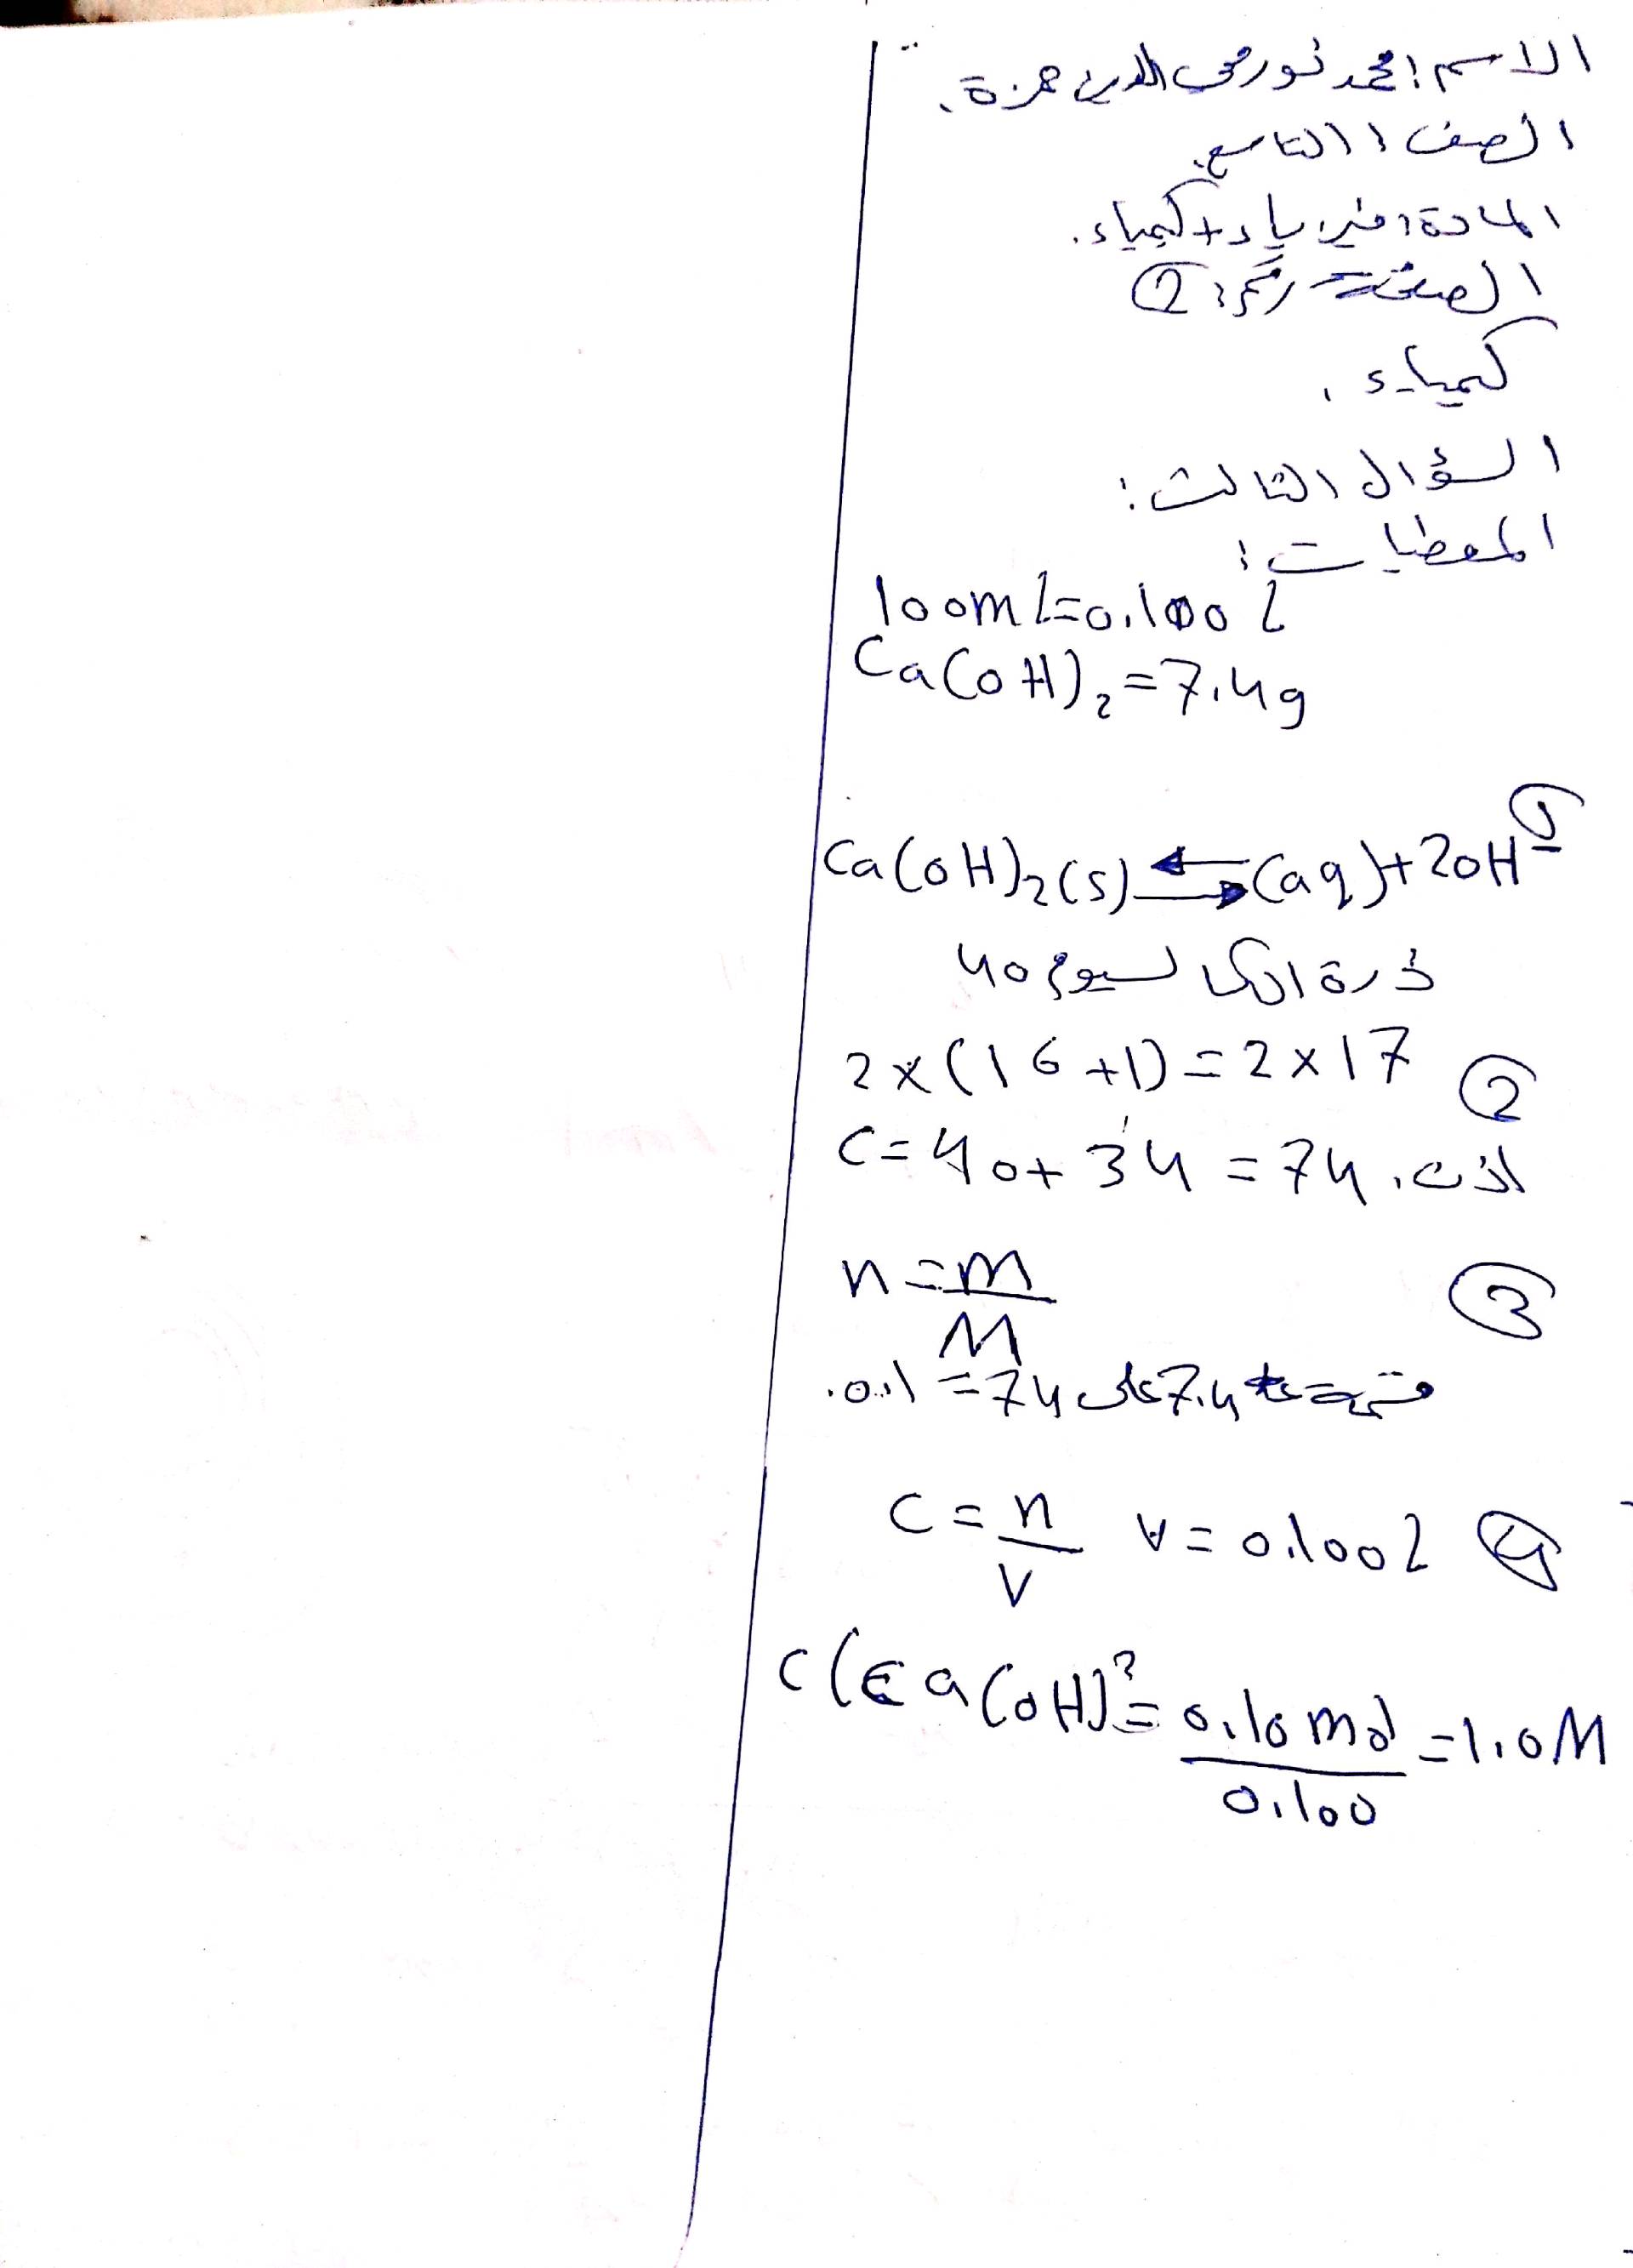 الاسم: محمد نور محي الدين حمزة.
الصف: التاسع.
المادة: فيزياء + كيمياء.
الصفحة رقم: 2
كيمياء.
السؤال الثالث:
المعطيات:
100ml=0.100l
Ca(OH)2=7.4g
1
Ca(OH)2(s) ⇆ (aq)+2OH-
ذرة الكالسيوم 40
2×(16+1)=2×17
2
C=40+34=74 اذن.
n=m/M 3
7.4 على 74=0.1.
C=n/V V=0.100l 4
C(Ca(OH)2=0.10mol/0.100=1.0M